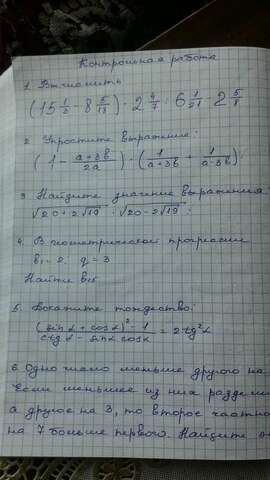 Контрольная работа
1. Вычислить
(15 1/2 - 8 5/13) · 2 4/7 : 6 1/21 2 5/8
2. Упростите выражение:
(1 - (a+3в)/2a) · (1/(a+3в) + 1/(a-3в))
3. Найдите значение выражения
√20+2√19 · √20-2√19
4. В геометрической прогрессии
b₁=2, q=3
Найти b
5. Докажите тождество:
((sin α + cos α)² - 1)/(ctg α - sin α cos α) = 2 tg² α
6. Одно число меньше другого на
Если меньшее из них
а другое на 3, то второе
на 7 больше первого. Найдите